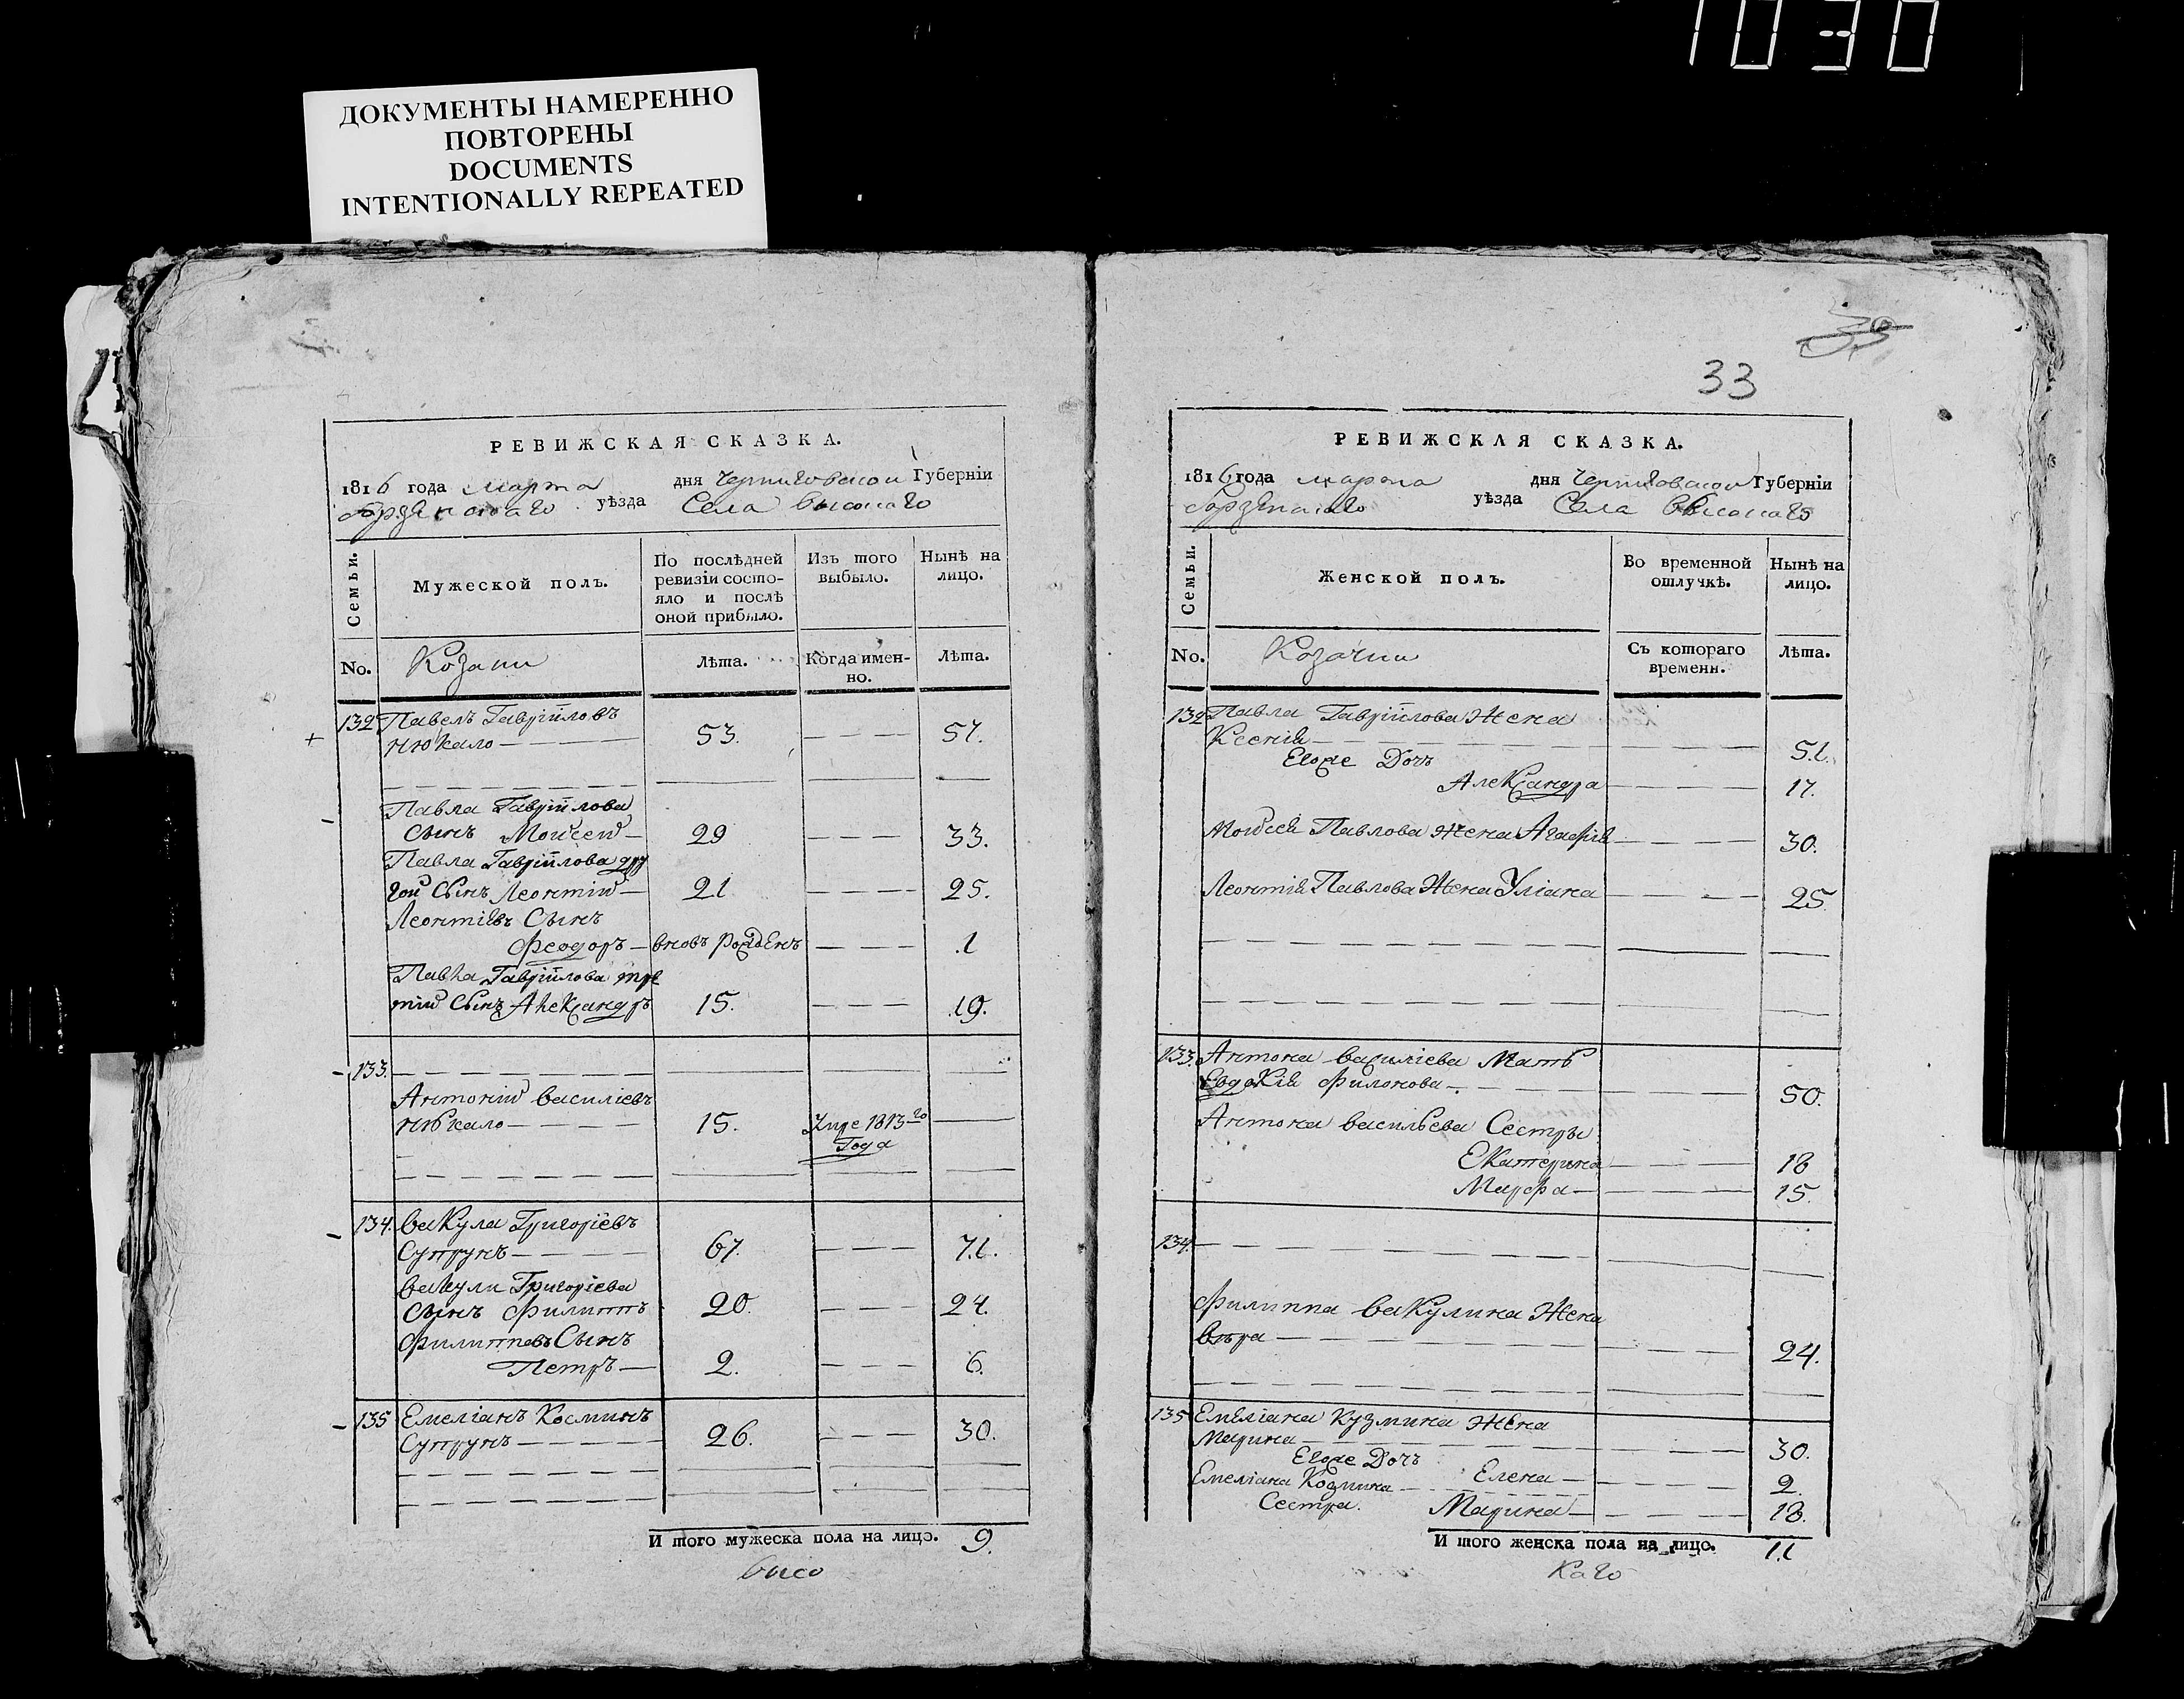 1030
ДОКУМЕНТЫ НАМЕРЕННО
ПОВТОРЕНЫ
DOCUMENTS
INTENTIONALLY REPEATED
РЕВИЖСКАЯ СКАЗКА.
1816 года марта дня Черниговской Губернїи
уѣзда Села высокаго
Семьи.
Мужеской полъ.
По послѣдней ревизїи состояло и послѣ оной прибыло.
Изъ того выбыло.
Нынѣ на лицо.
No.
Козаки
Лѣта.
Когда именно.
Лѣта.
132 Павелъ Гаврїиловъ
Нюкало 53. 57.
Павла Гаврїилова
сынъ Моисей 29 33.
Павла Гаврїилова дру
гой Сынъ Леонтїй 21 25.
Леонтїевъ Сынъ
Феодоръ вновь рожденъ 1
Павла Гаврїилова тре
тїй Сынъ Александръ 15. 19.
133.
Антонїй василїевъ
Нюкало 15. Умре 1813го
Года
134. вакула Григорїевъ
Супрунъ 67. 71.
вакули Григорїева
Сынъ Филиппъ 20. 24.
Филипповъ Сынъ
Петръ 2. 6.
135 Емелїанъ Косминъ
Супрунъ 26. 30.
И того мужеска пола на лицо. 9.
высо
30
33
РЕВИЖСКАЯ СКАЗКА.
1816 года марта дня Черниговской Губернїи
уѣзда Села высокаго
Семьи.
Женской полъ.
Во временной отлучкѣ.
Нынѣ на лицо.
No.
Козачки
Съ котораго времени.
Лѣта.
132 Павла Гаврїилова Жена
Ксенїя 51.
Егоже Дочь
Александра 17.
Моисея Павлова жена Агафїя 30.
Леонтїя Павлова Жена Улїана 25.
133. Антона василїева Мать
Евдокїя Филонова 50.
Антона васильева Сестры
Екатерина 18
Марфа 15.
134.
Филиппа вакулина Жена
вѣра 24.
135 Емелїана Кузмина Жена
Марина 30.
Егоже Дочь
Елена 2.
Емелїана Козмина
Сестра. Марина 18.
И того женска пола на лицо. 11
каго